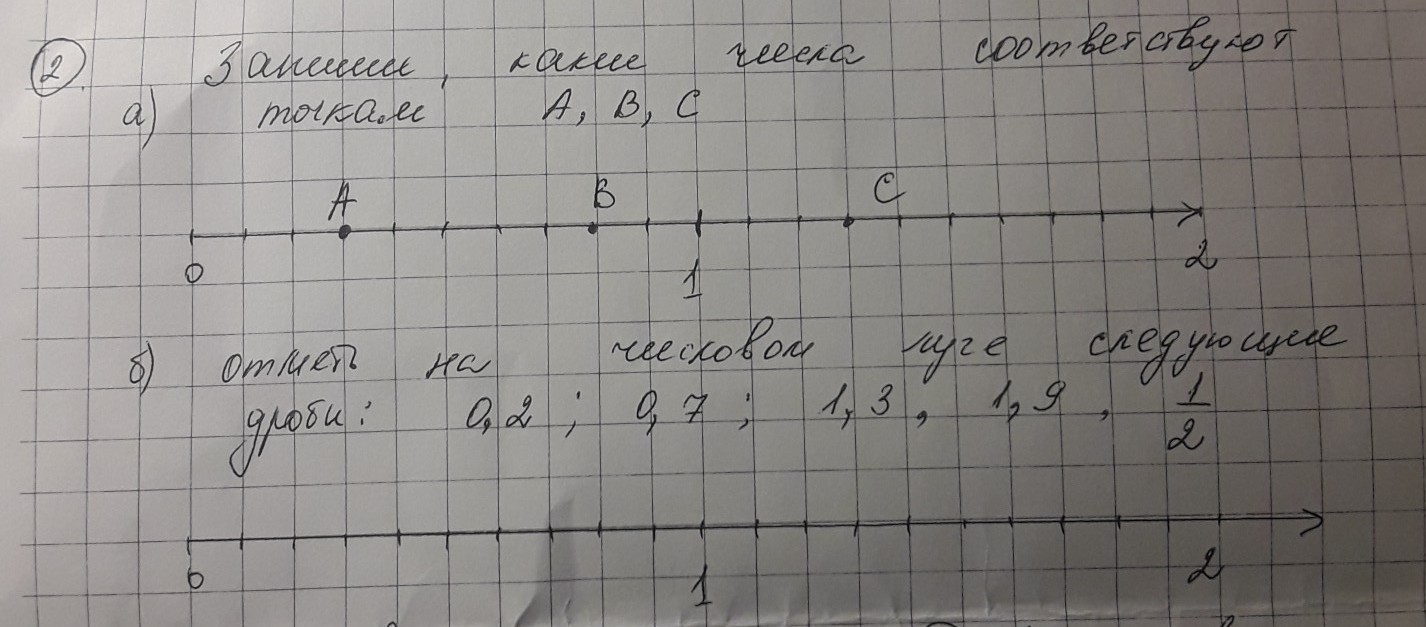 2. Запиши, какие числа соответствуют
а) точкам A, B, C
A B C
0 1 2
б) отметь на числовом луче следующие
дроби: 0,2; 0,7; 1,3, 1,9, 1/2
0 1 2